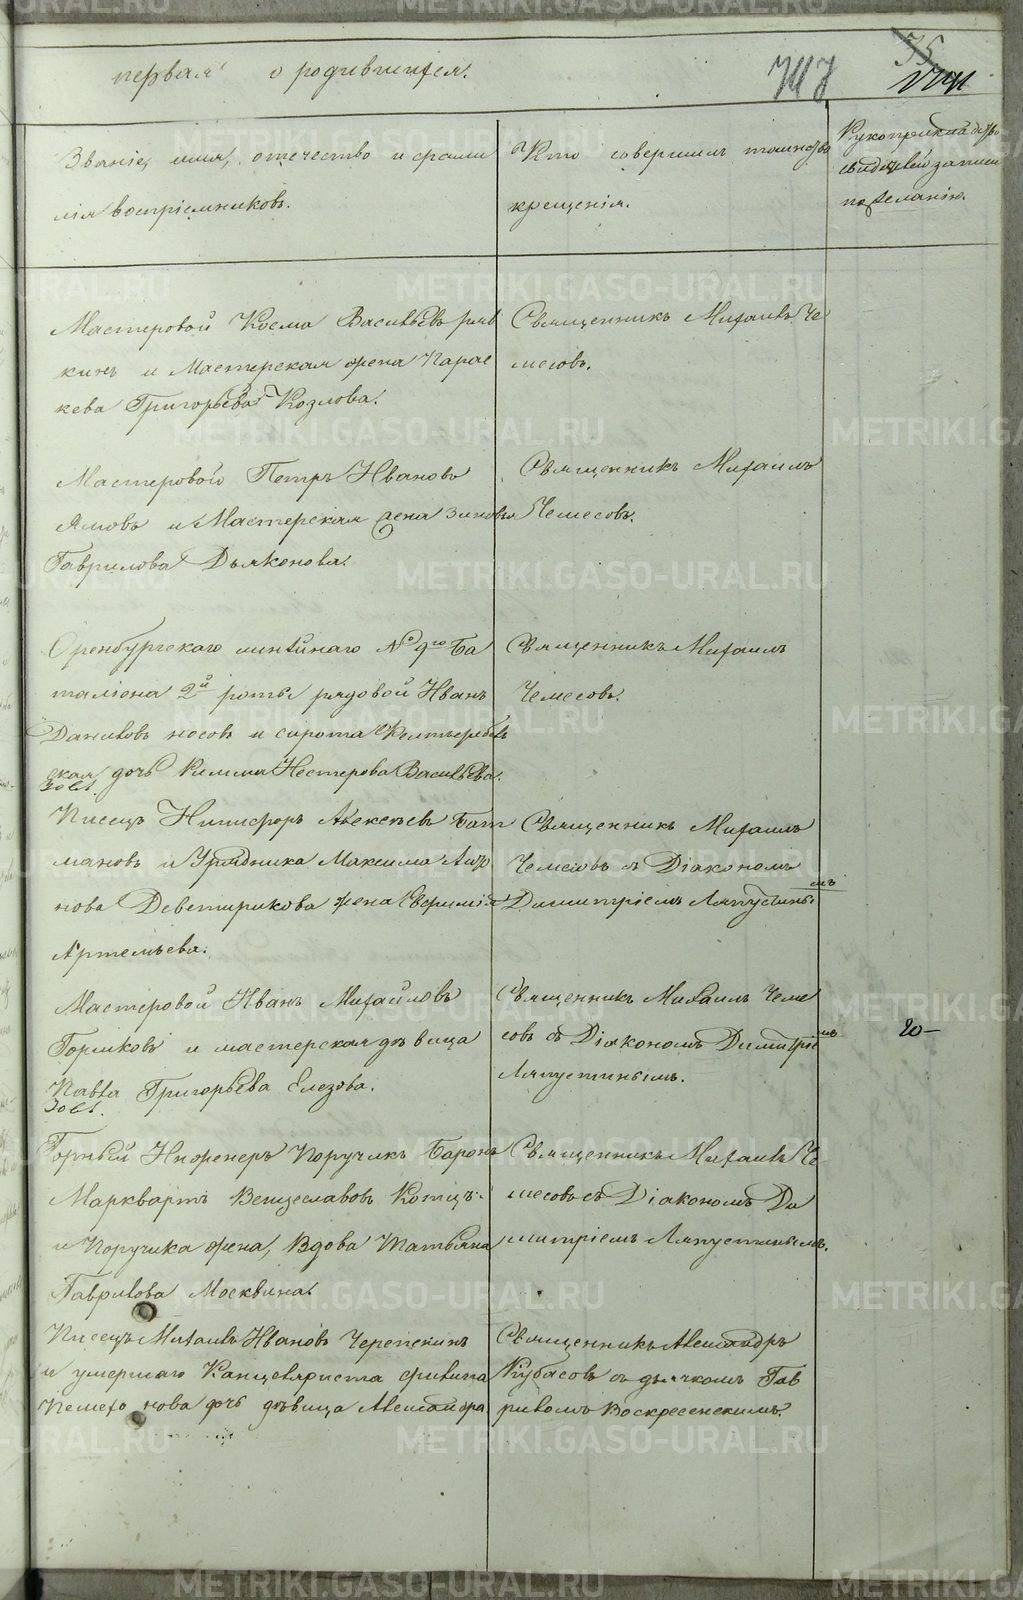 первая о родившихся.
Званіе, имя, отечество и фами
лія воспріемниковъ.
Кто совершилъ таинство
крещенія.
Рукоприкладство
свидѣтелей записи
по желанію.
Мастеровой Косма Васильевъ
кинъ и Мастерская жена Парас
кева Григорьева Козлова.
Священникъ Михаилъ Че
месовъ.
Мастеровой Петръ Ивановъ
Ямовъ и Мастерская жена Зиновья
Гаврилова Дьяконова.
Священникъ Михаилъ
Чемесовъ.
Оренбургскаго линѣйнаго № 9го Ба
таліона 2й роты рядовой Иванъ
Даниловъ Носовъ и сирота
ская дочь Нестерова Васильева.
Священникъ Михаилъ
Чемесовъ.
Писецъ Никифоръ Алексѣевъ Бат
мановъ и Урядника Максима
нова Деветирикова жена Евфимія
Артемьева.
Священникъ Михаилъ
Чемесовъ съ Діакономъ
Димитріемъ Ляпустины
мъ
Мастеровой Иванъ Михайловъ
Горшковъ и мастерская дѣвица
Павла Григорьева Елезова.
Священникъ Михаилъ Чеме
совъ съ Діакономъ Димитріе
мъ
Ляпустинымъ.
20-
Горный Инженеръ Поручикъ Баронъ
Марквартъ Венцеславовъ Котцъ
и Поручика жена, Вдова Татьяна
Гаврилова Москвина.
Священникъ Михаилъ Че
месовъ съ Діакономъ Ди
митріемъ Ляпустинымъ.
Писецъ Михаилъ Ивановъ Черепкинъ
и умершаго Канцеляриста Филипа
нова дочь дѣвица Александра
Священникъ Александръ
Кубасовъ съ дьячкомъ Гав
риломъ Воскресенскимъ.
METRIKI.GASO-URAL.RU